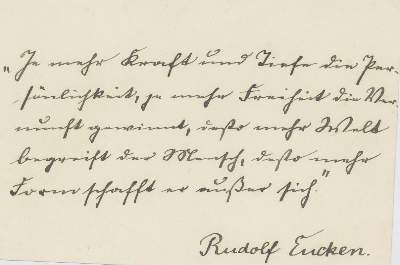 „Je mehr Kraft und Tiefe die Per-
sönlichkeit, je mehr Freiheit die Ver-
nunft gewinnt, desto mehr Welt
begreift der Mensch, desto mehr
Form schafft er außer sich."
Rudolf Eucken.